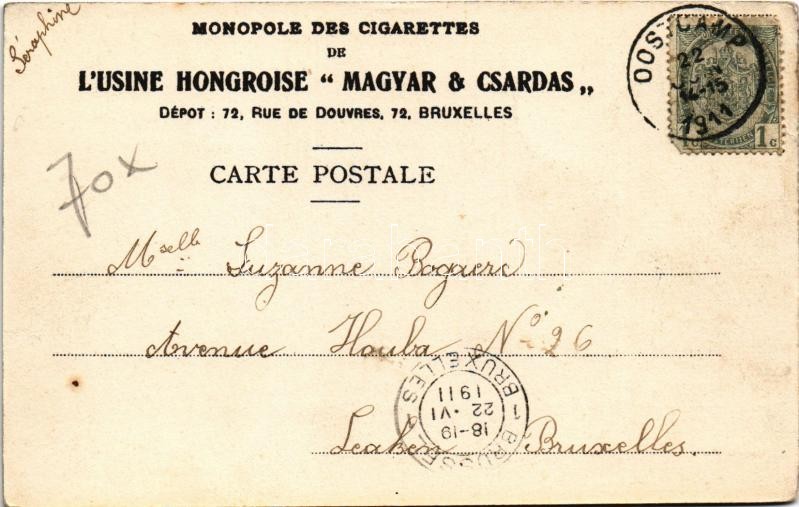 Séraphine
MONOPOLE DES CIGARETTES
DE
L'USINE HONGROISE “ MAGYAR & CSARDAS „
DÉPOT : 72, RUE DE DOUVRES, 72, BRUXELLES
OOSTCAMP
22
14-15
1911
1c
70x
CARTE POSTALE
Mselle Suzanne Bogaerd
Avenue Houba No 26
Leaken Bruxelles.
1 BRUXELLES
18-19
22 · VI
1911